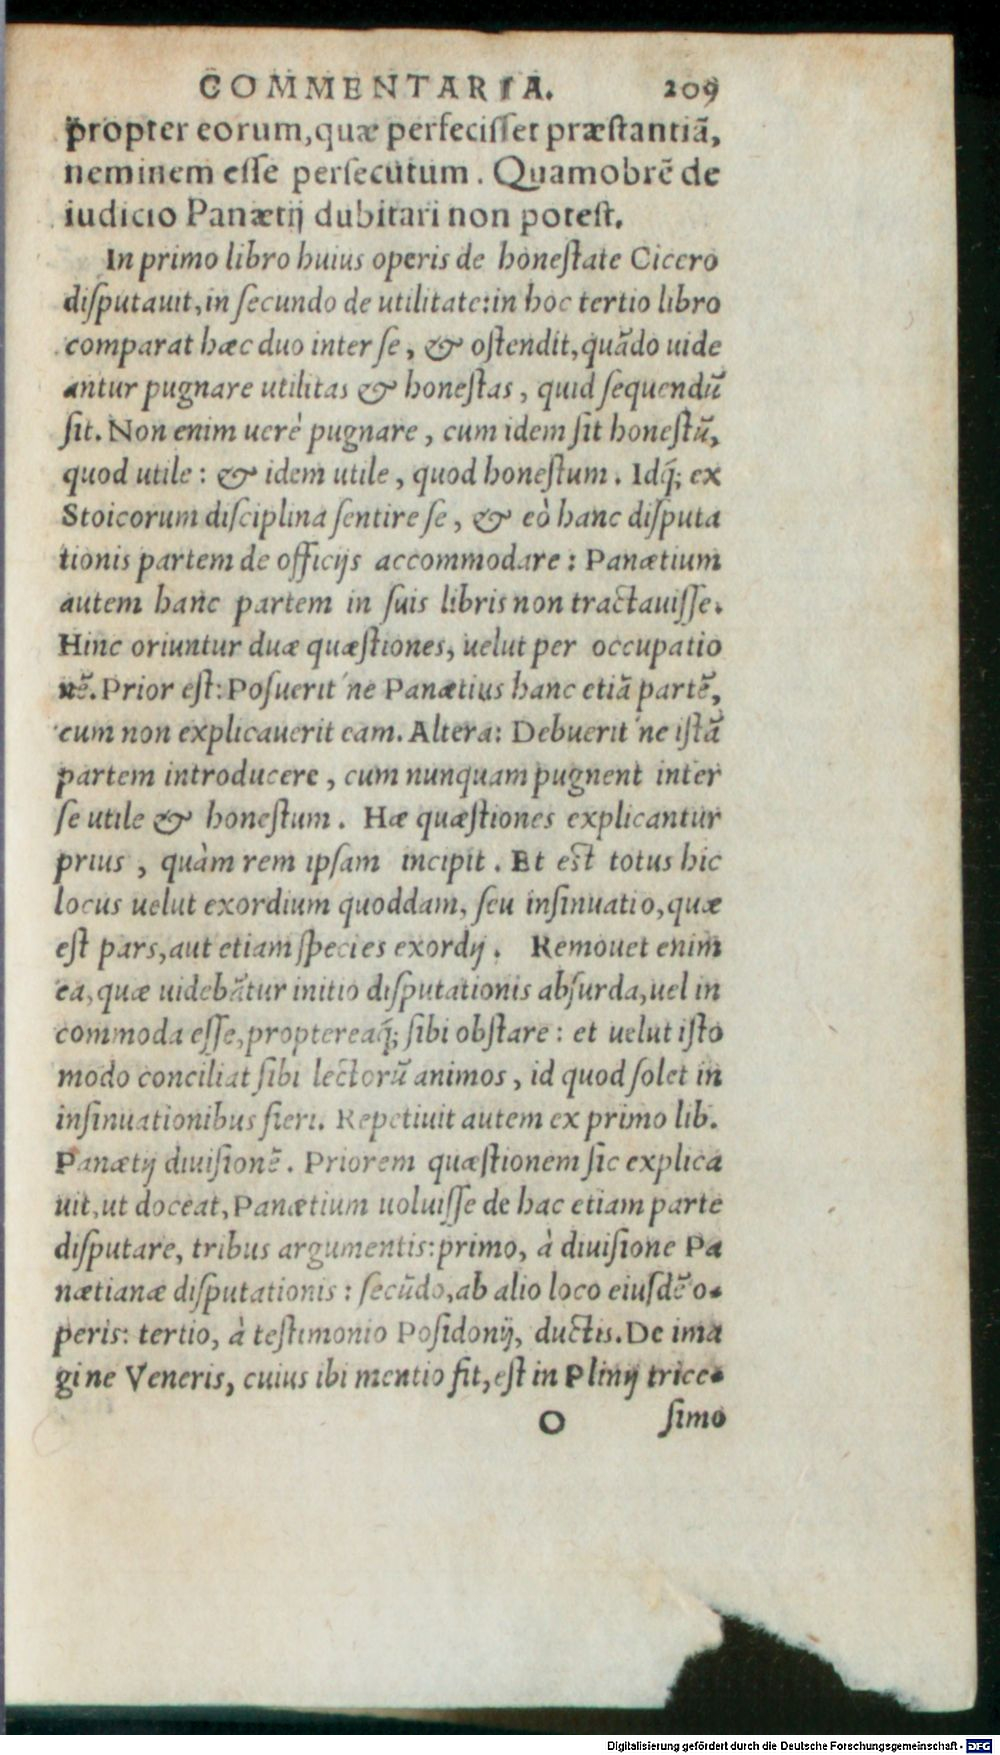 COMMENTARIA. 209
propter eorum, quæ perfecisset præstantiã,
neminem esse persecutum. Quamobrẽ de
iudicio Panætij dubitari non potest.
In primo libro huius operis de honestate Cicero
disputauit, in secundo de utilitate: in hoc tertio libro
comparat hæc duo inter se, & ostendit, quãdo uide
antur pugnare utilitas & honestas, quid sequendũ
sit. Non enim uerè pugnare, cum idem sit honestũ,
quod utile: & idem utile, quod honestum. Idq́; ex
Stoicorum disciplina sentire se, & eò hanc disputa
tionis partem de officijs accommodare: Panætium
autem hanc partem in suis libris non tractauisse.
Hinc oriuntur duæ quæstiones, uelut per occupatio
nẽ. Prior est: Posuerit'ne Panætius hanc etiã partẽ,
cum non explicauerit eam. Altera: Debuerit'ne istã
partem introducere, cum nunquam pugnent inter
se utile & honestum. Hæ quæstiones explicantur
prius, quàm rem ipsam incipit. Et est totus hic
locus uelut exordium quoddam, seu insinuatio, quæ
est pars, aut etiam species exordij. Remouet enim
ea, quæ uidebãtur initio disputationis absurda, uel in
commoda esse, proptereaq́; sibi obstare: et uelut isto
modo conciliat sibi lectorũ animos, id quod solet in
insinuationibus fieri. Repetiuit autem ex primo lib.
Panætij diuisionẽ. Priorem quæstionem sic explica
uit, ut doceat, Panætium uoluisse de hac etiam parte
disputare, tribus argumentis: primo, à diuisione Pa
nætianæ disputationis: secũdo, ab alio loco eiusdẽ o-
peris: tertio, à testimonio Posidonij, ductis. De ima
gine Veneris, cuius ibi mentio fit, est in Plinij trice-
O simo
Digitalisierung gefördert durch die Deutsche Forschungsgemeinschaft - DFG